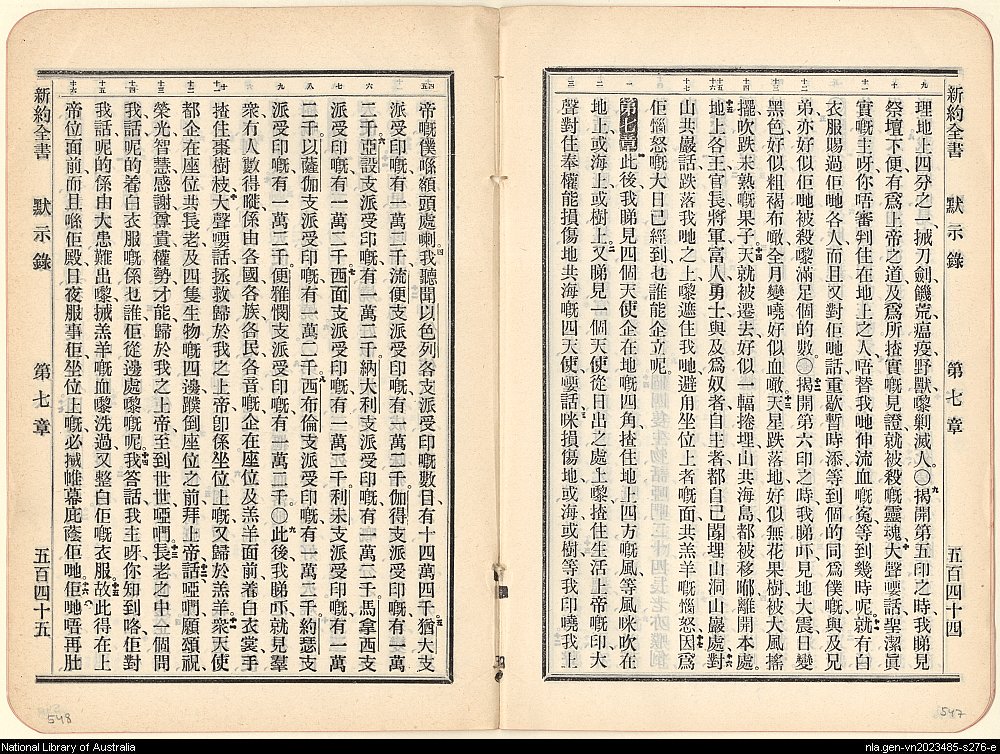 新約全書 默示錄 第七章 五百四十四
理地上四分之一、搣刀劍饑荒瘟疫野獸嚟剿滅人。〇揭開第五印之時我睇見
祭壇下便有爲上帝之道及爲所揸實嘅見證就被殺嘅靈魂大聲嗌話聖潔眞
實嘅主呀你唔審判住在地上之人唔替我哋伸流血嘅寃等到幾時呢。就有白
衣服賜過佢哋各人而且又對佢哋話重歇暫時添等到個的同爲僕嘅與及兄
弟亦好似佢哋被殺嚟滿足個的數。〇揭開第六印之時我睇吓見地大震日變
黑色好似粗褐布噉全月變曉好似血噉天星跌落地好似無花果樹被大風搖
擺吹跌未熟嘅果子。天就被遷去好似一輻捲埋山共海島都被移郁離開本處。
地上各王官長將軍富人勇士與及爲奴者自主者都自己匿埋山洞山巖處對
山共巖話跌落我哋之上嚟遮住我哋避用坐位上者嘅面共羔羊嘅惱怒因爲
佢惱怒嘅大日已經到乜誰能企立呢
第七章 此後我睇見四個天使企在地嘅四角揸住地上四方嘅風等風咪吹在
地上或海上或樹上。又睇見一個天使從日出之處上嚟揸住生活上帝嘅印大
聲對住奉權能損傷地共海嘅四天使嗌話咪損傷地或海或樹等我印曉我上
新約全書 默示錄 第七章 五百四十五
帝嘅僕喺額頭處喇。我聽聞以色列各支派受印嘅數目有十四萬四千。猶大支
派受印嘅有一萬二千流便支派受印嘅有一萬二千伽得支派受印嘅有一萬
二千。亞設支派受印嘅有一萬二千納大利支派受印嘅有一萬二千馬拿西支
派受印嘅有一萬二千西面支派受印嘅有一萬二千利未支派受印嘅有一萬
二千以薩伽支派受印嘅有一萬二千西布倫支派受印嘅有一萬二千約瑟支
派受印嘅有一萬二千便雅憫支派受印嘅有一萬二千。〇此後我睇吓就見羣
衆冇人數得嘥係由各國各族各民各音嘅企在座位及羔羊面前着白衣裳手
揸住棗樹枝大聲嗌話拯救歸於我之上帝卽係坐位上嘅又歸於羔羊。衆天使
都企在座位共長老及四隻生物嘅四邊蹼倒座位之前拜上帝話啞們願頌祝
榮光智慧感謝尊貴權勢才能歸於我之上帝至到世世啞們。長老之中仝個問
我話呢的着白衣服嘅係乜誰佢從邊處嚟嘅呢。我答話我主呀你知到咯佢對
我話呢的係由大患難出嚟搣羔羊嘅血嚟洗過又整白佢嘅衣服。故此得在上
帝位面前而且喺佢殿日夜服事佢坐位上嘅必搣帷幕庇蔭佢哋。佢哋唔再肚
548
547
National Library of Australia
nla.gen-vn2023485-s276-e